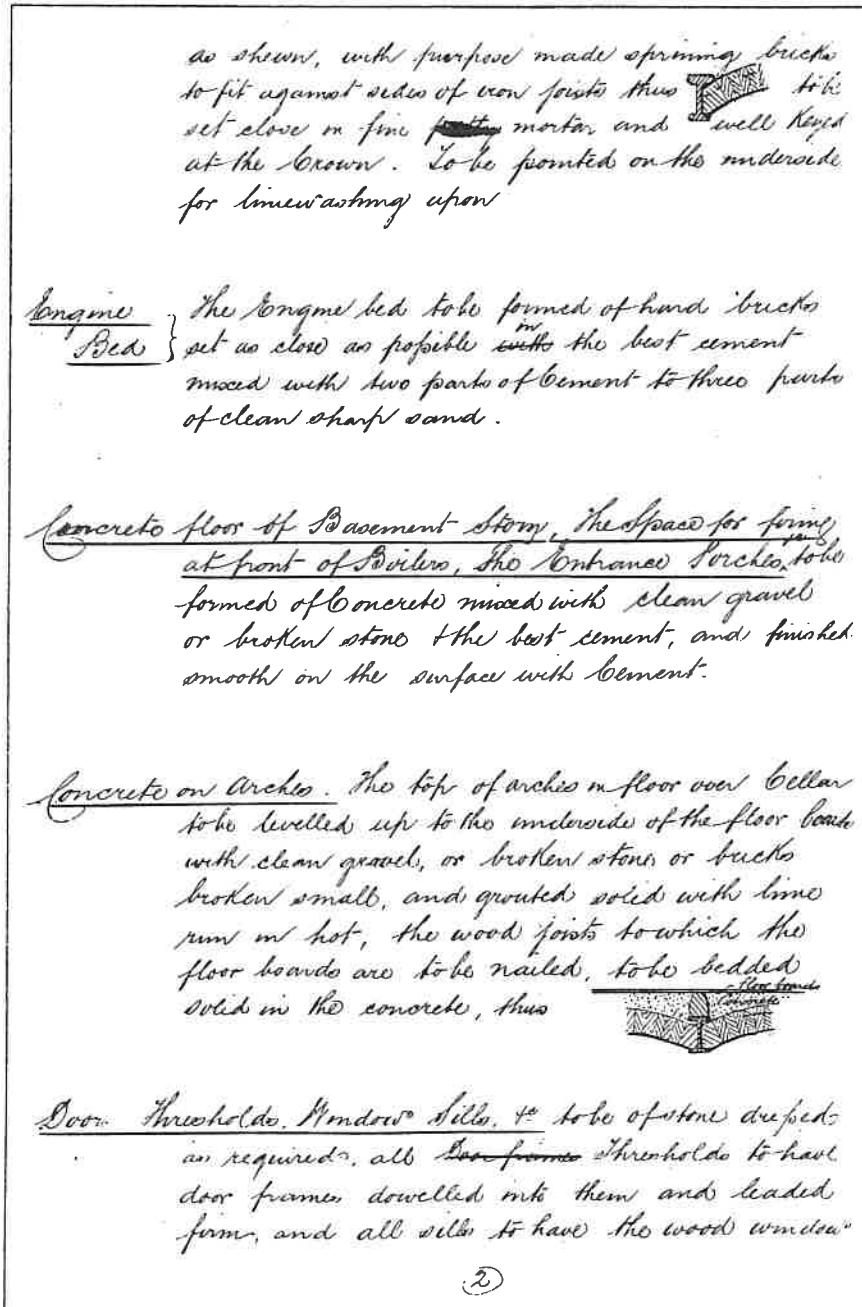 as shewn, with purpose made sprining bricks
to fit against sides of iron joists thus to be
set close in fine mortar and well Keyed
at the Crown. To be pointed on the underside
for limewashing upon
Engine Bed } The Engine bed to be formed of hard bricks
set as close as possible with in the best cement
mixed with two parts of Cement to three parts
of clean sharp sand.
Concrete floor of Basement Story, The Space for firing
at front of Boilers, The Entrance Porches, to be
formed of Concrete mixed with clean gravel
or broken stone & the best cement, and finished
smooth on the surface with Cement.
Concrete on Arches. The top of arches in floor over Cellar
to be levelled up to the underside of the floor boards
with clean gravel, or broken stones or bricks
broken small, and grouted solid with lime
run in hot, the wood joists to which the
floor boards are to be nailed, to be bedded
solid in the concrete, thus
floor boards
Concrete
Door Thresholds, Window Sills, &c to be of stone dressed
as required, all Door frames Thresholds to have
door frames dowelled into them and leaded
firm, and all sills to have the wood window
2